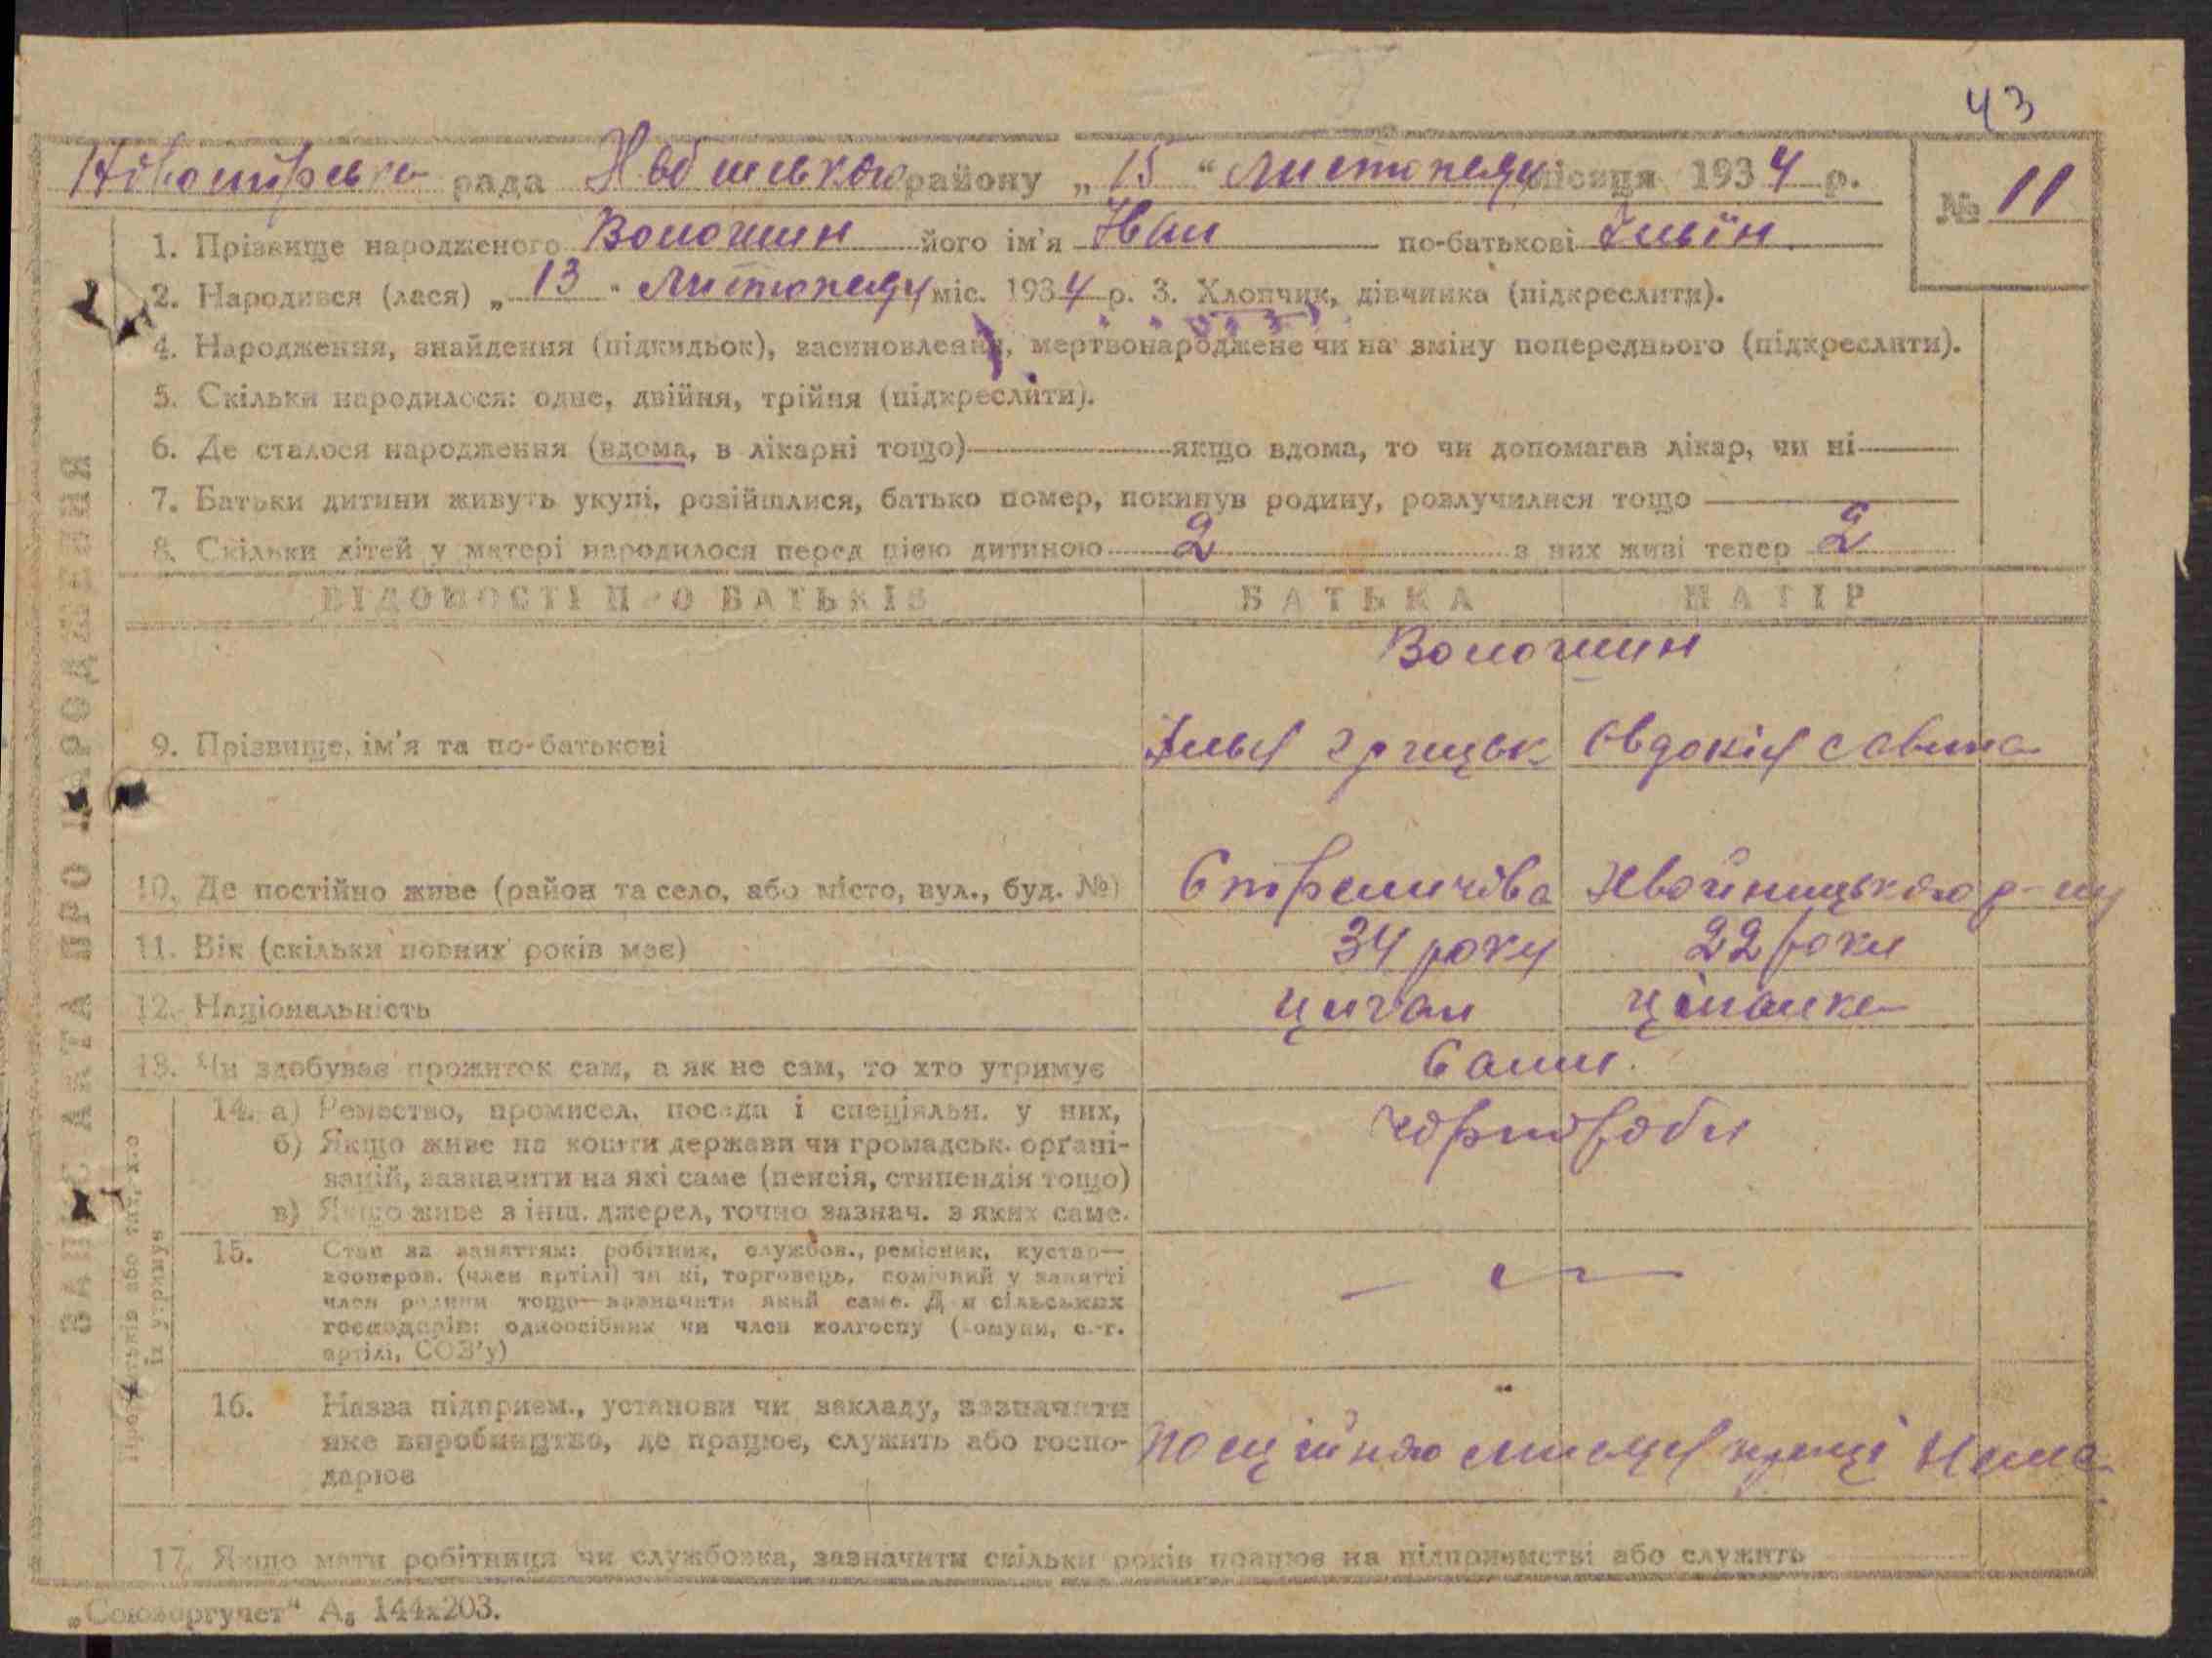 43
рада району „ 15 “ Листопаду місяця 1934 р.
№ 11
1. Прізвище народженого Волошин його ім'я Іван по-батькові Ільїн
2. Народився (лася) „ 13 “ Листопаду міс. 1934 р. 3. Хлопчик, дівчинка (підкреслити).
4. Народження, знайдення (підкидьок), засиновлення, мертвонароджене чи на зміну попереднього (підкреслити).
5. Скільки народилося: одне, двійня, трійня (підкреслити).
6. Де сталося народження (вдома, в лікарні тощо) якщо вдома, то чи допомагав лікар, чи ні
7. Батьки дитини живуть укупі, розійшлися, батько помер, покинув родину, розлучилися тощо
8. Скільки дітей у матері народилося перед цією дитиною 2 з них живі тепер 2
ВІДОМОСТІ ПРО БАТЬКІВ БАТЬКА МАТІР
Волошин
9. Прізвище, ім'я та по-батькові Ілья Грицьк Овдокія Савина
10. Де постійно живе (район та село, або місто, вул., буд. №) Стреличіва Хвойницького р-ну
11. Вік (скільки повних років має) 34 роки 22 роки
12. Національність циган ціганка
13. Чи здобуває прожиток сам, а як не сам, то хто утримує Сами
14. а) Ремество, промисел, посада і спеціяльн. у них, чорнороби
б) Якщо живе на кошти держави чи громадськ. орґані-
зацій, зазначити на які саме (пенсія, стипендія тощо)
в) Якщо живе з інш. джерел, точно зазнач. з яких саме.
15. Стан за заняттям: робітник, службов., ремісник, кустар—
кооперов. (член артілі) чи ні, торговець, помічний у занятті
член родини тощо—зазначити який саме. Для сільських
господарів: одноосібник чи член колгоспу (комуни, с.-г.
артілі, СОЗ'у)
16. Назва підприєм., установи чи закладу, зазначити
яке виробництво, де працює, служить або госпо-
дарює
місця праці нема
17. Якщо мати робітниця чи службовка, зазначити скільки років працює на підприємстві або служить
„Союзоргучет“ А₅ 144х203.
ЗАПИС АКТА ПРО НАРОДЖЕННЯ
їх утримує